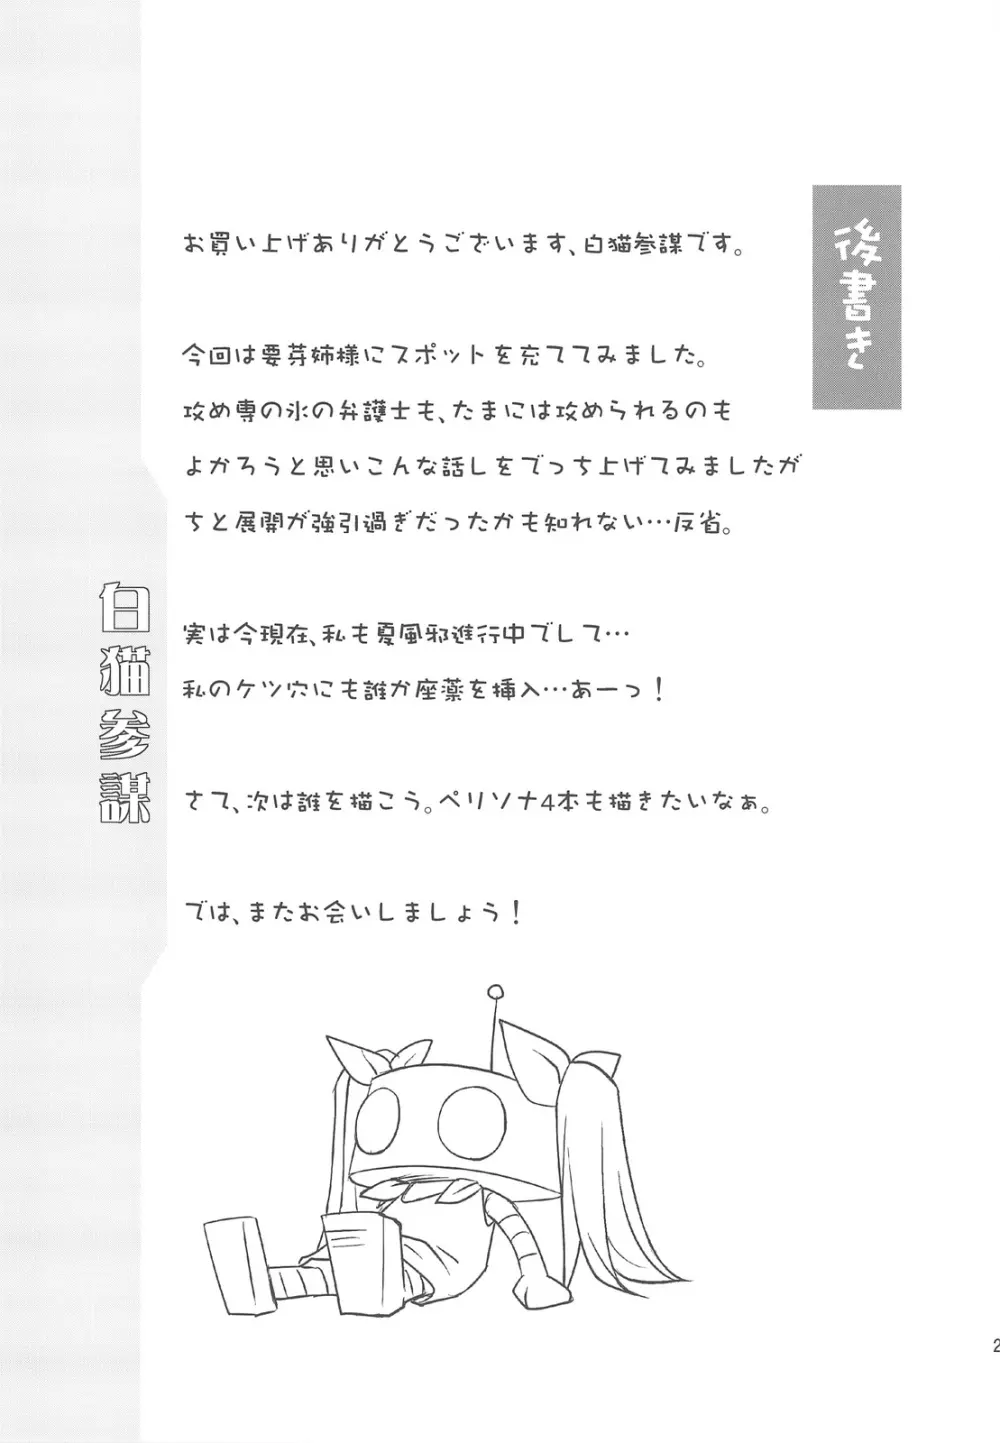 後書き
お買い上げありがとうございます、白猫参謀です。
今回は要芽姉様にスポットを充ててみました。
攻め専の氷の弁護士も、たまには攻められるのも
よかろうと思いこんな話しをでっち上げてみましたが
ちと展開が強引過ぎだったかも知れない…反省。
実は今現在、私も夏風邪進行中でして…
私のケツ穴にも誰か座薬を挿入…あーっ！
さて、次は誰を描こう。ペリソナ4本も描きたいなぁ。
では、またお会いしましょう！
白猫参謀
2